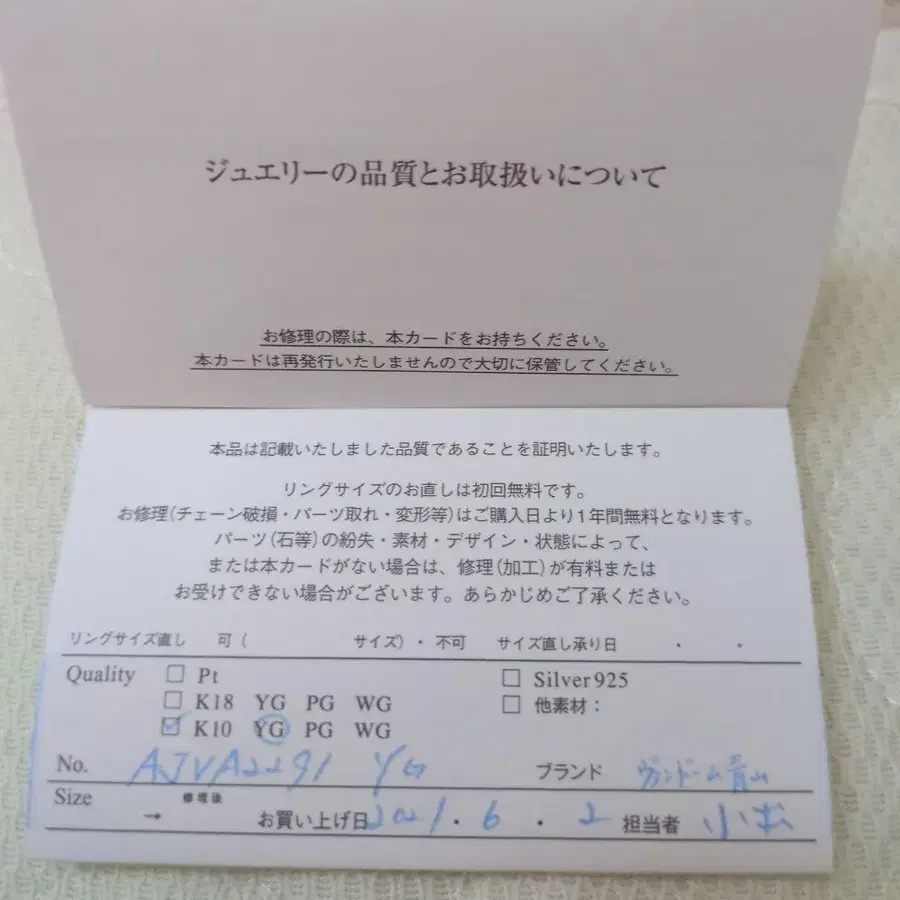 ジュエリーの品質とお取扱いについて
お修理の際は、本カードをお持ちください。
本カードは再発行いたしませんので大切に保管してください。
本品は記載いたしました品質であることを証明いたします。
リングサイズのお直しは初回無料です。
お修理(チェーン破損・パーツ取れ・変形等)はご購入日より1年間無料となります。
パーツ(石等)の紛失・素材・デザイン・状態によって、
または本カードがない場合は、修理(加工)が有料または
お受けできない場合がございます。あらかじめご了承ください。
リングサイズ直し 可( サイズ)・不可 サイズ直し承り日 ・ ・
Quality □ Pt □ Silver925
□ K18 YG PG WG □ 他素材:
☑ K10 YG PG WG
No. AJVA2291 YG ブランド ヴァンドーム青山
Size → 修理後 お買い上げ日 2021・6・2 担当者 小松